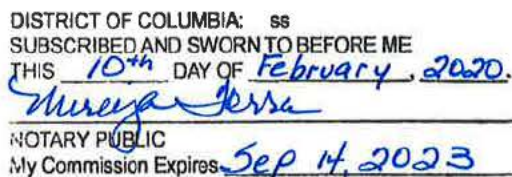 DISTRICT OF COLUMBIA: ss
SUBSCRIBED AND SWORN TO BEFORE ME
THIS 10th DAY OF February, 2020.
NOTARY PUBLIC
My Commission Expires Sep 14, 2023